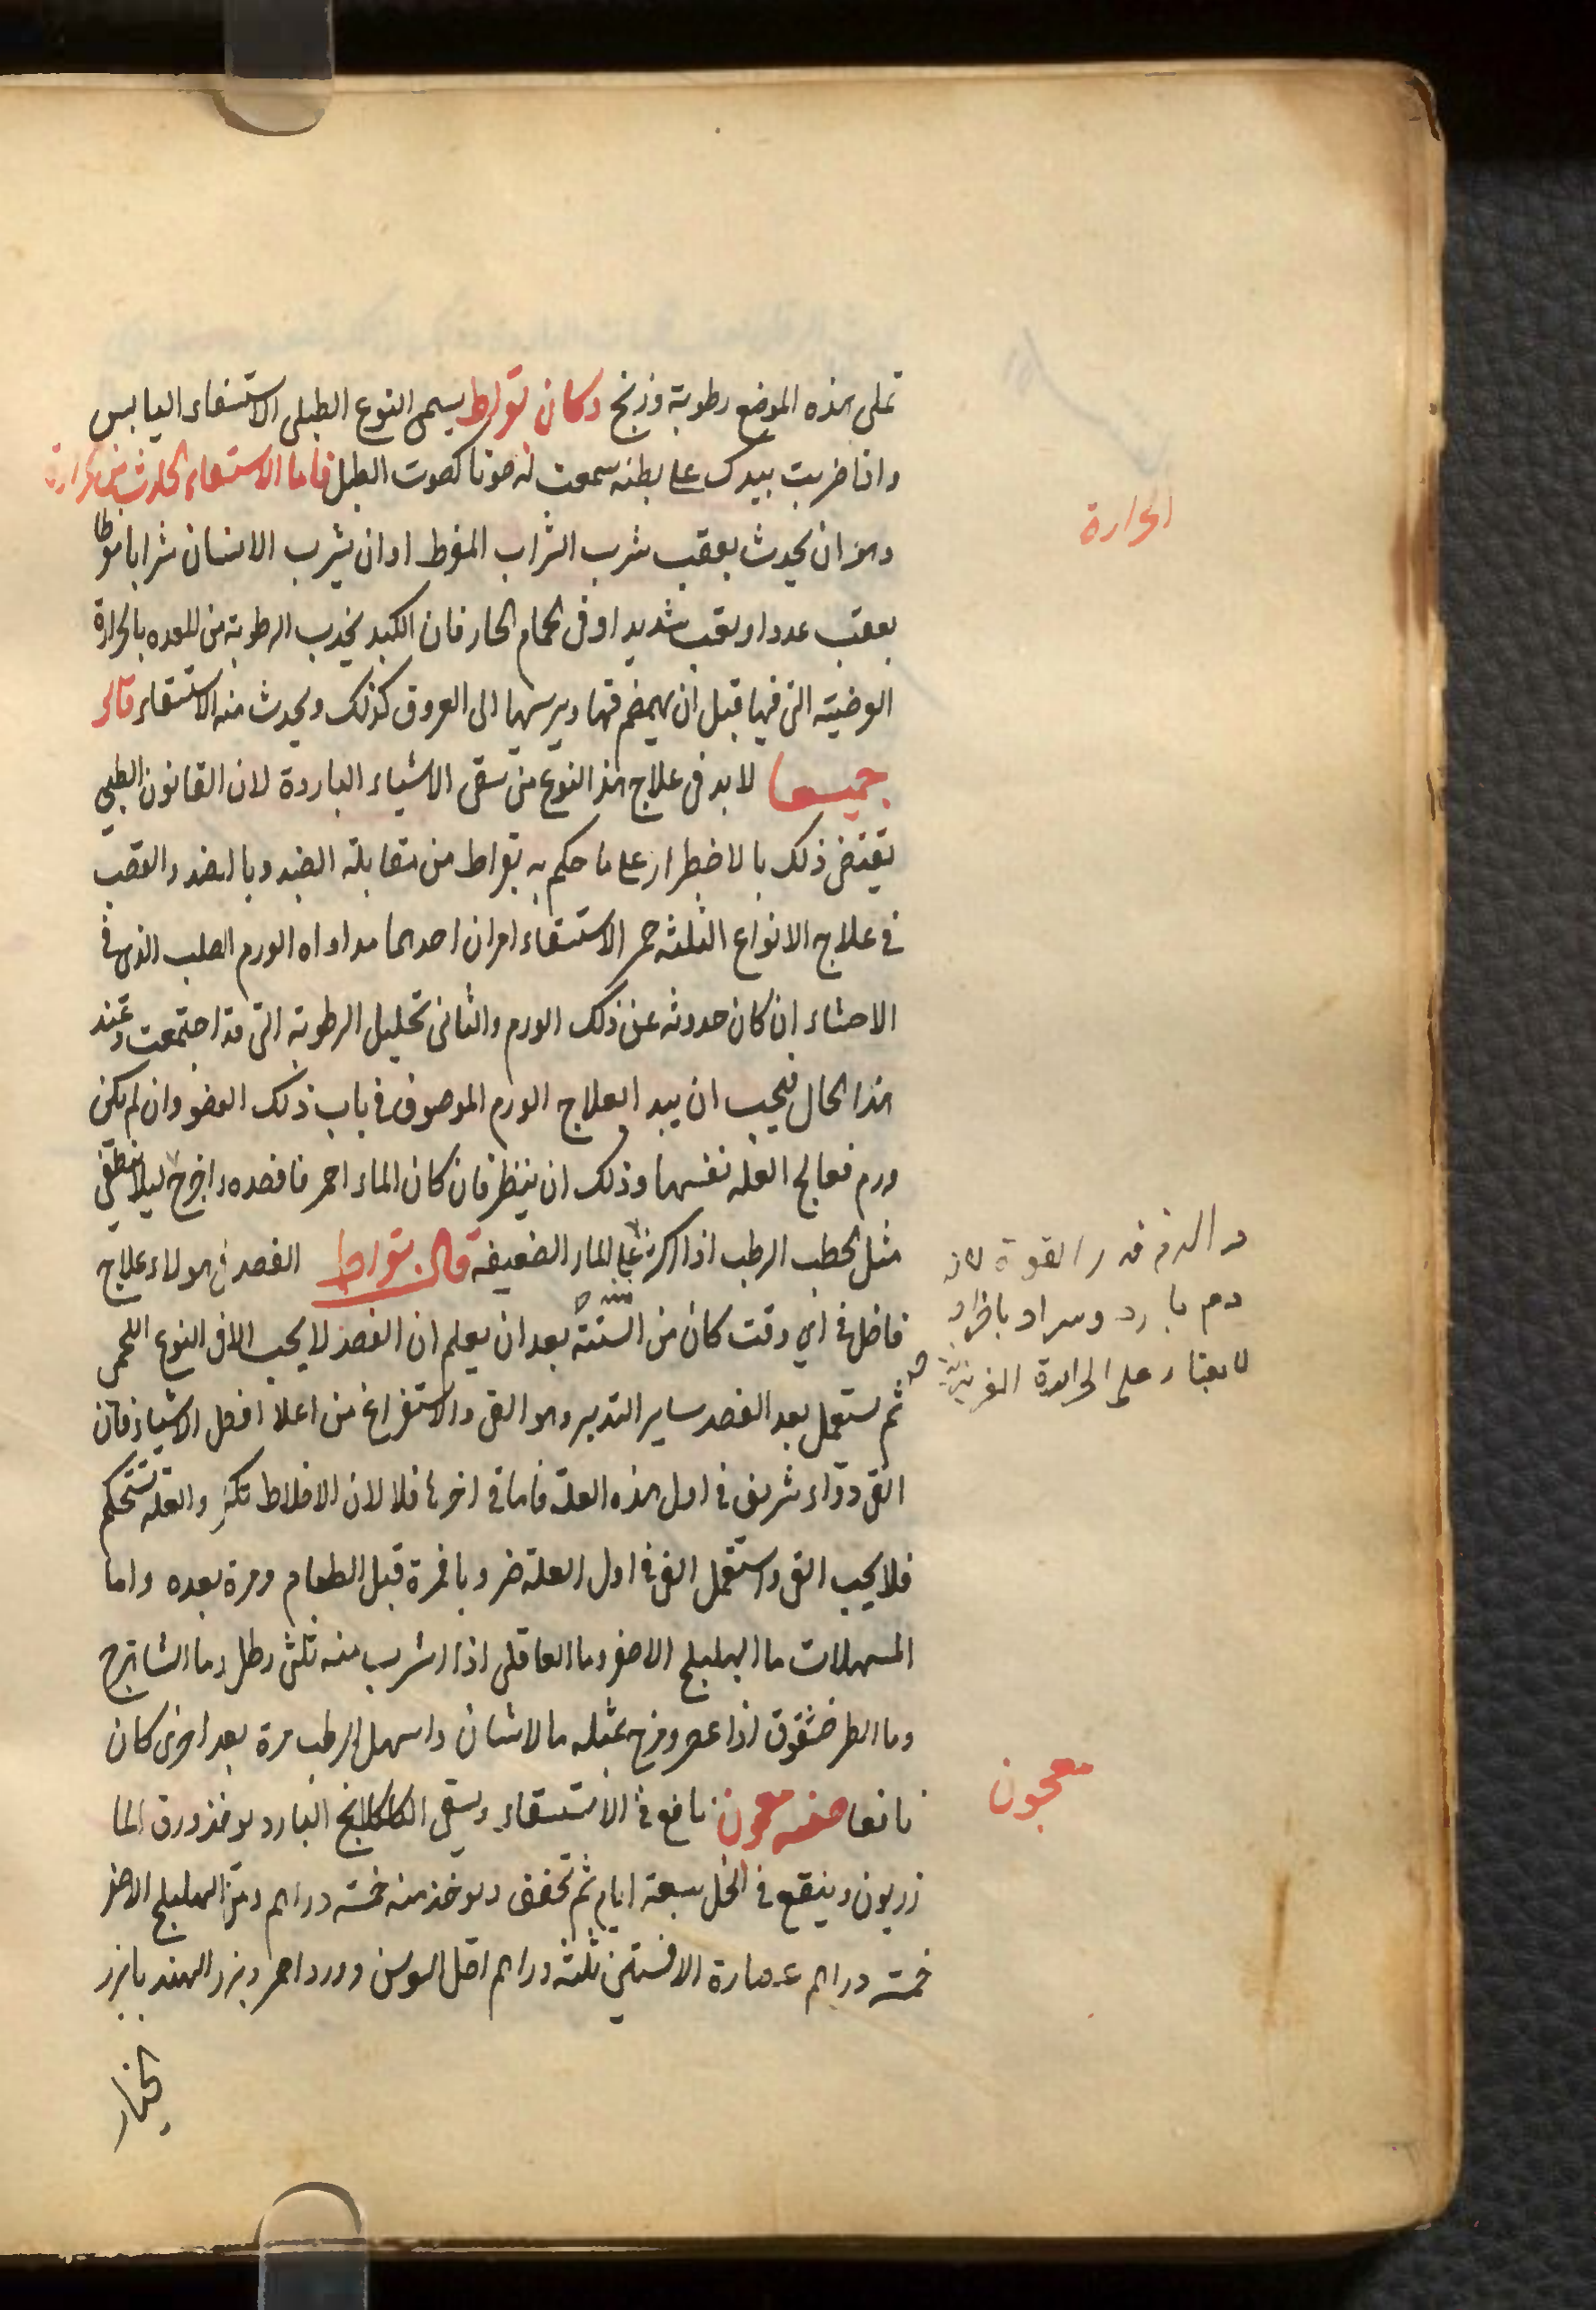 تملى هذه الموضع رطوبة وريح وكان بقراط يسمى النوع الطبلى الاستسقاء اليابس
واذا ضربت بيدك على بطنه سمعت له صوتا كصوت الطبل فاما الاستسقاء الحادث من الحرارة
وهو ان يحدث بعقب شرب الشراب المفرط او ان يشرب الانسان شرابا
بعقب عدو او تعب شديد او فى الحمام الحار فان الكبد يجذب الرطوبة من المعده بالحرارة
التى فيها قبل ان يهضم فيها ويرسلها الى العروق كذلك ويحدث منه الاستسقاء قالا
جميعا لابد فى علاج هذا النوع من سقى الاشياء الباردة لان القانون الطبي
يقتضى ذلك بالاضطرار على ما حكم به بقراط من مقابلة الضد وبالضد والقصد
فى علاج الانواع الثلثه الاستسقاء امران احدهما مداواه الورم الصلب الذى فى
الاحشاء ان كان حدوثه عن ذلك الورم والثانى تحليل الرطوبة التى قد اجتمعت وعند
هذا الحال فيجب ان يبدا بعلاج الورم الموصوف فى باب ذلك العضو وان لم يكن
ورم فعالج العله نفسها وذلك ان ينظر فان كان الماء احمر فافصده واخرج ليلا ينطفى
مثل الحطب الرطب اذا على النار الضعيفه قال بقراط الفصد فى هولاء علاج
فاضل فى اي وقت كان من السنة بعد ان يعلم ان الفصد لا يجب الا فى النوع اللحمى
ثم يستعمل بعد الفصد ساير التدبير وهو القى والاستفراغ من اعلا افضل الاشياء فان
القى دواء شريف فى اول هذه العلة فاما فى اخرها فلا لان الاخلاط تكثر والعله تستحكم
فلا يجب القى واستعمل القى فى اول العله ضروبا فمرة قبل الطعام ومرة بعده واما
المسهلات ما الهليلج الاصفر وما القاقلى اذا شرب منه ثلثى رطل وما الشاهترج
وما الطرخشقوق اذا عصر ومزج بمثله ما واسهل الرطب مرة بعد اخرى كان
نافعا صفه معجون نافع فى الاستسقاء ويسقى الكاكلانج البارد يوخذ ورق الما
زريون وينقع فى الخل سبعة ايام ثم تجفف ويوخذ منه خمسه دراهم الهليلج الاصفر
خمسه دراهم عصارة الافسنتين ثلثه دراهم اصل السوس وورد احمر وبزر الهندبا بزر
الخيار
الحرارة
قدر القوة لانه
دم بارد
على الحرارة الغريزية
معجون